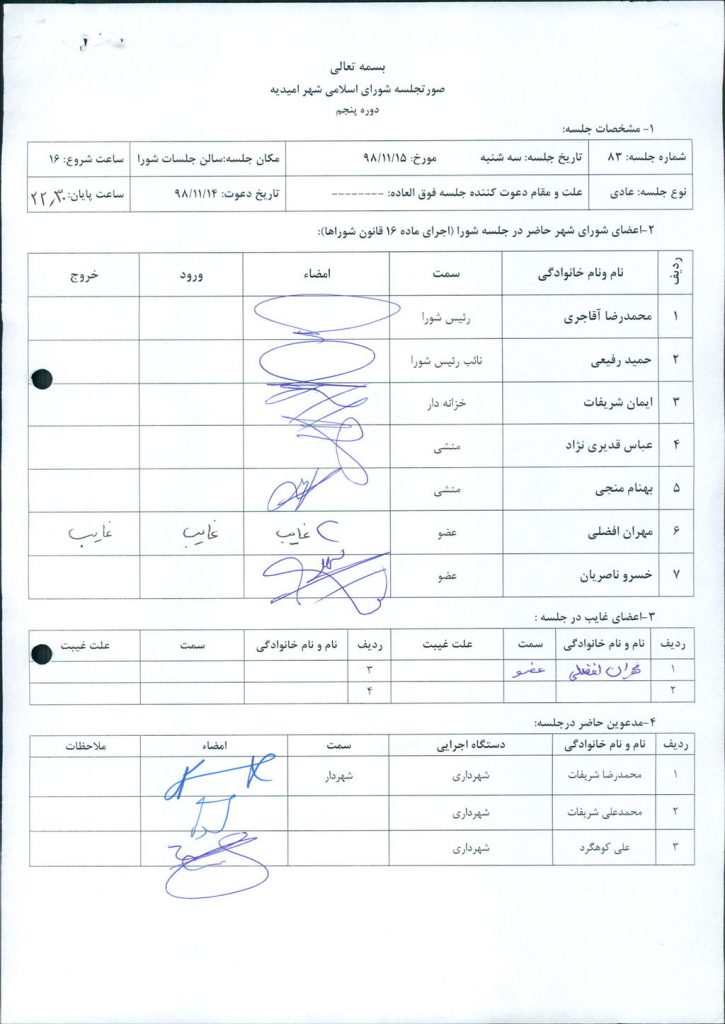 بسمه تعالی
صورتجلسه شورای اسلامی شهر امیدیه
دوره پنجم
۱- مشخصات جلسه:
شماره جلسه: ۸۳ تاریخ جلسه: سه شنبه مورخ: ۹۸/۱۱/۱۵ مکان جلسه:سالن جلسات شورا ساعت شروع: ۱۶
نوع جلسه: عادی علت و مقام دعوت کننده جلسه فوق العاده: -------- تاریخ دعوت: ۹۸/۱۱/۱۴ ساعت پایان: ۲۲٫۳۰
۲-اعضای شورای شهر حاضر در جلسه شورا (اجرای ماده ۱۶ قانون شوراها):
ردیف نام ونام خانوادگی سمت امضاء ورود خروج
۱ محمدرضا آقاجری رئیس شورا
۲ حمید رفیعی نائب رئیس شورا
۳ ایمان شریفات خزانه دار
۴ عباس قدیری نژاد منشی
۵ بهنام منجی منشی
۶ مهران افضلی عضو غایب غایب غایب
۷ خسرو ناصریان عضو
۳-اعضای غایب در جلسه :
ردیف نام و نام خانوادگی سمت علت غیبت ردیف نام و نام خانوادگی سمت علت غیبت
۱ مهران افضلی عضو ۳
۲ ۴
۴-مدعوین حاضر درجلسه:
ردیف نام و نام خانوادگی دستگاه اجرایی سمت امضاء ملاحظات
۱ محمدرضا شریفات شهرداری شهردار
۲ محمدعلی شریفات شهرداری
۳ علی کوهگرد شهرداری